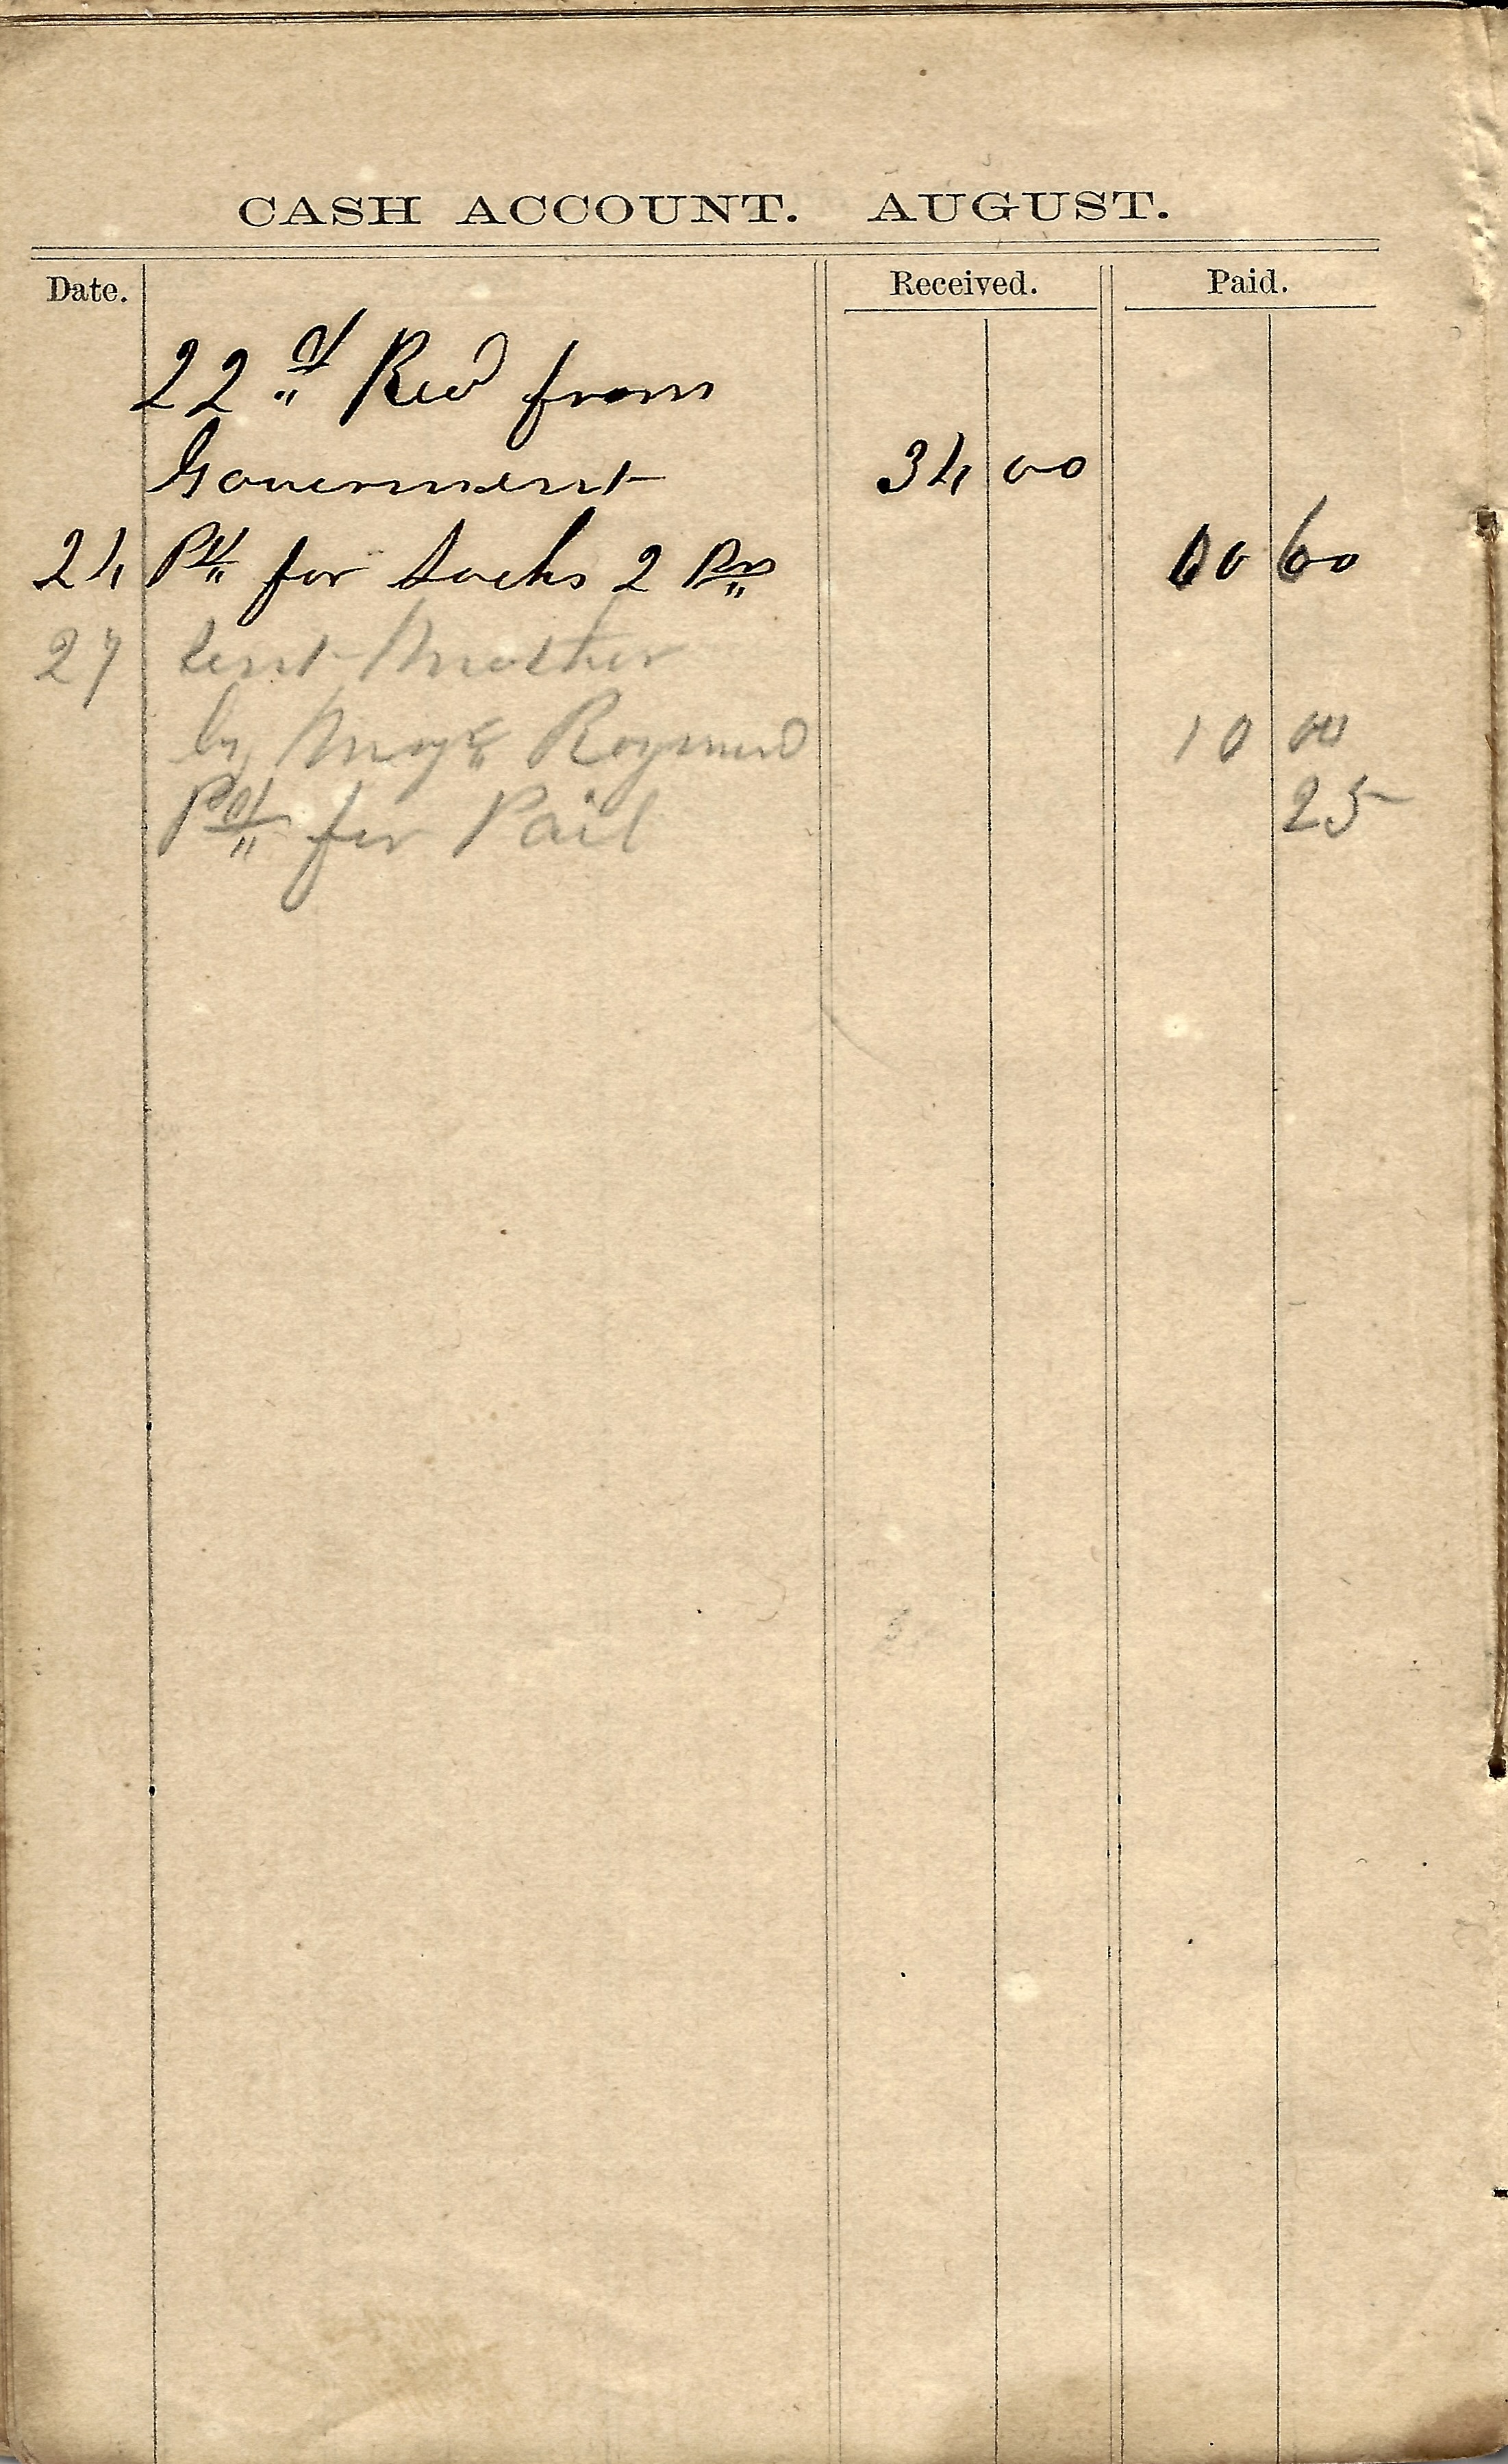 CASH ACCOUNT. AUGUST.
Date. Received. Paid.
22d Recd from
Government 34 00
24 Pd for Socks 2 Prs 00 60
27 Sent Mother
by 10 00
Pd for Pail 25